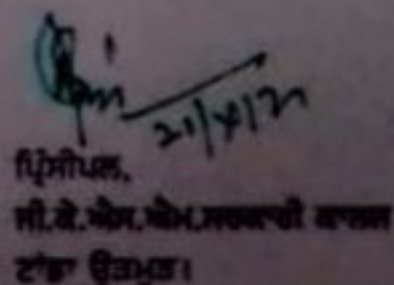 21/4/21
ਪ੍ਰਿੰਸੀਪਲ,
ਜੀ.ਕੇ.ਐਸ.ਐਮ.ਸਰਕਾਰੀ ਕਾਲਜ
ਟਾਂਡਾ ਉੜਮੁੜ।